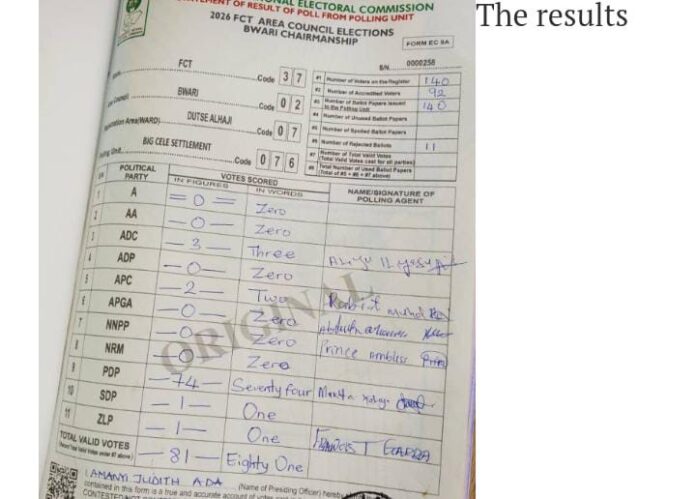 The results
NATIONAL ELECTORAL COMMISSION
STATEMENT OF RESULT OF POLL FROM POLLING UNIT
2026 FCT AREA COUNCIL ELECTIONS
BWARI CHAIRMANSHIP
FORM EC 8A
S/N. 0000258
FCT Code 3 7
BWARI Code 0 2
DUTSE ALHAJI
(WARD) Code 0 7
BIG CELE SETTLEMENT
Code 0 7 6
#1 Number of Voters on the Register 140
#2 Number of Accredited Voters 92
#3 Number of Ballot Papers Issued to the Polling Unit 140
#4 Number of Unused Ballot Papers
#5 Number of Spoiled Ballot Papers
#6 Number of Rejected Ballots 11
#7 Number of Total Valid Votes (Total Valid Votes cast for all parties)
#8 Total Number of Used Ballot Papers (Total of #5 + #6 + #7 above)
S/N POLITICAL PARTY VOTES SCORED NAME/SIGNATURE OF POLLING AGENT
IN FIGURES IN WORDS
1 A =0= Zero
2 AA —0— Zero
3 ADC —3— Three
4 ADP —0— Zero
5 APC —2— Two
6 APGA —0— Zero
7 NNPP —0— Zero Prince
8 NRM —0— Zero
9 PDP —74— Seventy four
10 SDP —1— One
11 ZLP —1— One FRANCIS T
TOTAL VALID VOTES —81— Eighty One
ORIGINAL
I, AMANYI JUDITH ADA (Name of Presiding Officer) hereby
contained in this form is a true and accurate account of votes
CONTESTED